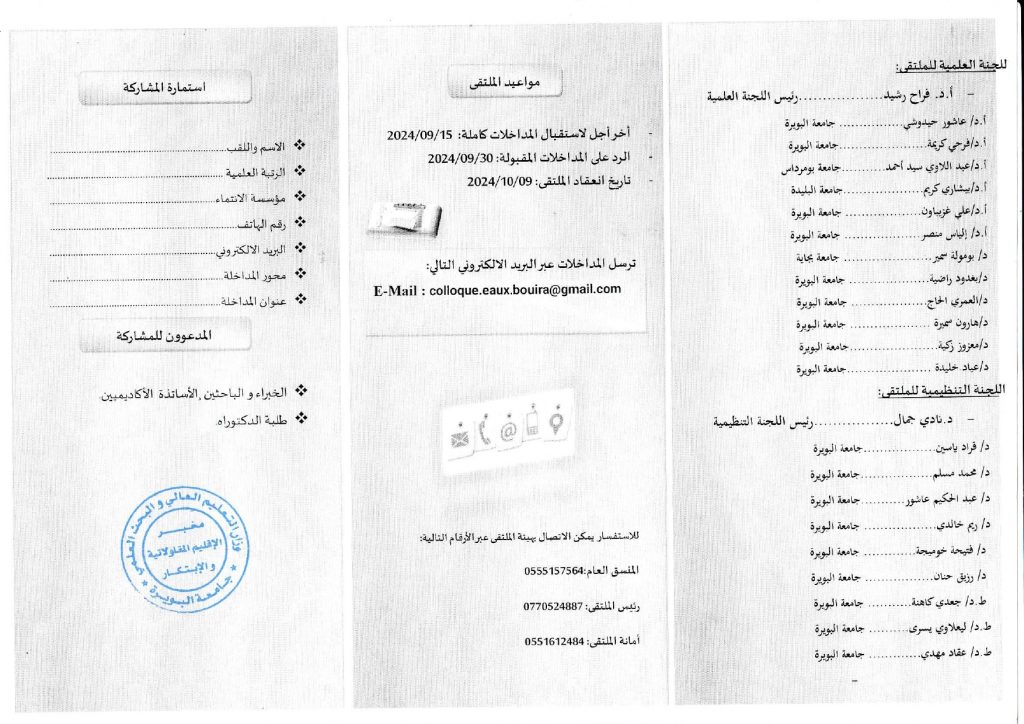 للجنة العلمية للملتقى:
- أ.د. فراح رشيد....................رئيس اللجنة العلمية
أ.د/ عاشور حيدوشي............... جامعة البويرة
أ.د/فرحي كريمة..................... جامعة البويرة
أ.د/عبد اللاوي سيد أحمد............جامعة بومرداس
أ.د/بيشاري كريم................... جامعة البليدة
أ.د/علي غزيباون.................... جامعة البويرة
أ.د/ إلياس منصر.................. جامعة البويرة
د/ بومولة سمير.................... جامعة بجاية
د/بغدود راضية.................... جامعة البويرة
د/العمري الحاج.................... جامعة البويرة
د/هارون سميرة .................... جامعة البويرة
د/معزوز زكية......................جامعة البويرة
د/عباد خليدة ..................... جامعة البويرة
اللجنة التنظيمية للملتقى:
- د.نادي جمال....................رئيس اللجنة التنظيمية
د/ قراد ياسين..................جامعة البويرة
د/ محمد مسلم.................. جامعة البويرة
د/ عبد الحكيم عاشور........... جامعة البويرة
د/ ريم خالدي................... جامعة البويرة
د/ فتيحة خوميجة............... جامعة البويرة
د/ رزيق حنان.................. جامعة البويرة
ط.د/ جعدي كاهنة............. جامعة البويرة
ط.د/ ليعلاوي يسرى........... جامعة البويرة
ط.د/ عقاد مهدي.............. جامعة البويرة
-
مواعيد الملتقى
- أخر أجل لاستقبال المداخلات كاملة: 2024/09/15
- الرد على المداخلات المقبولة: 2024/09/30
- تاريخ انعقاد الملتقى: 2024/10/09
ترسل المداخلات عبر البريد الالكتروني التالي:
E-Mail : colloque.eaux.bouira@gmail.com
للاستفسار يمكن الاتصال بهيئة الملتقى عبر الأرقام التالية:
المنسق العام: 0555157564
رئيس الملتقى: 0770524887
أمانة الملتقى: 0551612484
استمارة المشاركة
❖ الاسم واللقب..............................
❖ الرتبة العلمية..............................
❖ مؤسسة الانتماء..............................
❖ رقم الهاتف..............................
❖ البريد الالكتروني..............................
❖ محور المداخلة..............................
❖ عنوان المداخلة..............................
المدعوون للمشاركة
❖ الخبراء و الباحثين ,الأساتذة الأكاديميين.
❖ طلبة الدكتوراه.
وزارة التعليم العالي و البحث العلمي
مخبر
الإقليم المقاولاتية
و الإبتكار
* جامعة البويرة *